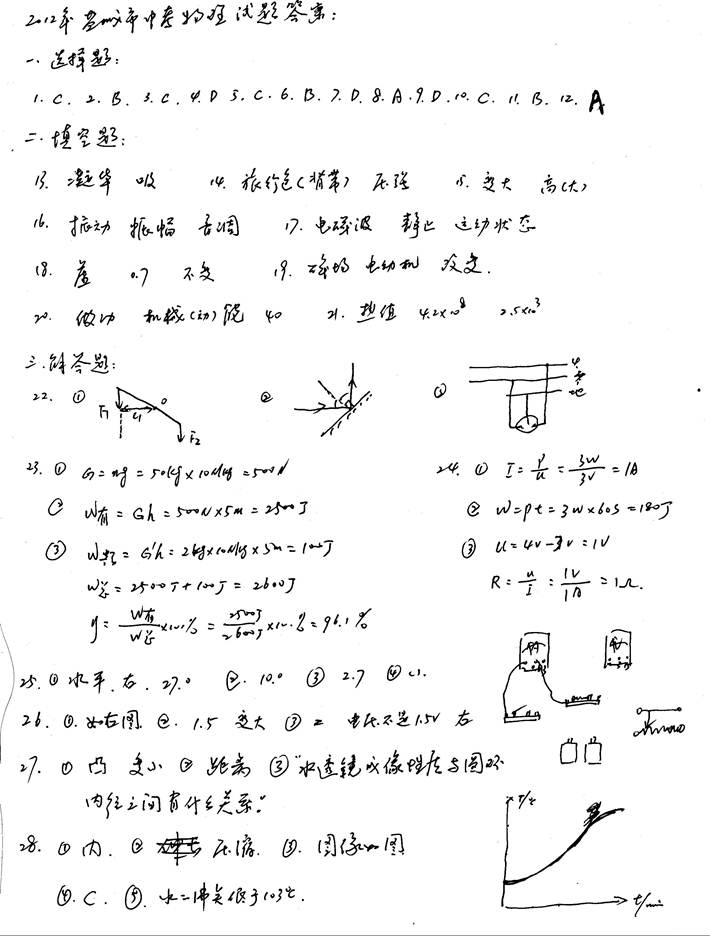 2012年盐城市中考物理试题答案:
一、选择题:
1. C. 2. B. 3. C. 4. D 5. C. 6. B. 7. D. 8. A. 9. D. 10. C. 11. B. 12. A
二、填空题:
13. 凝华 吸 14. 旅行包(背带) 压强 15. 变大 高(大)
16. 振动 振幅 音调 17. 电磁波 静止 运动状态
18. 0.7 不变 19. 磁场 电动机 改变.
20. 做功 机械(动)能 40 21. 热值 4.2×10⁸ 2.5×10³
三.解答题:
22. ① F₁ L₁ O F₂ ② ③ 火 零 地
23. ① G=mg=50kg×10N/kg=500N
② W有=Gh=500N×5m=2500J
③ W额=G'h=2kg×10N/kg×5m=100J
W总=2500J+100J=2600J
η=W有/W总×100%=2500J/2600J×100%=96.1%
24. ① I=P/U=3W/3V=1A
② W=Pt=3W×60S=180J
③ U=4V-3V=1V
R=U/I=1V/1A=1Ω.
25. ① 水平. 右. 27.0 ②. 10.0 ③ 2.7 ④ 小.
26. ①. 如右图 ②. 1.5 变大 ③ 二 电压不是1.5V 右
27. ① 凸 变小 ② 距离 ③ "水透镜成像性质与圆环
内径之间有什么关系."
28. ① 内. ② 压缩. ③. 图像如图
④. C. ⑤. 水的沸点低于103℃.
T/℃
t/min